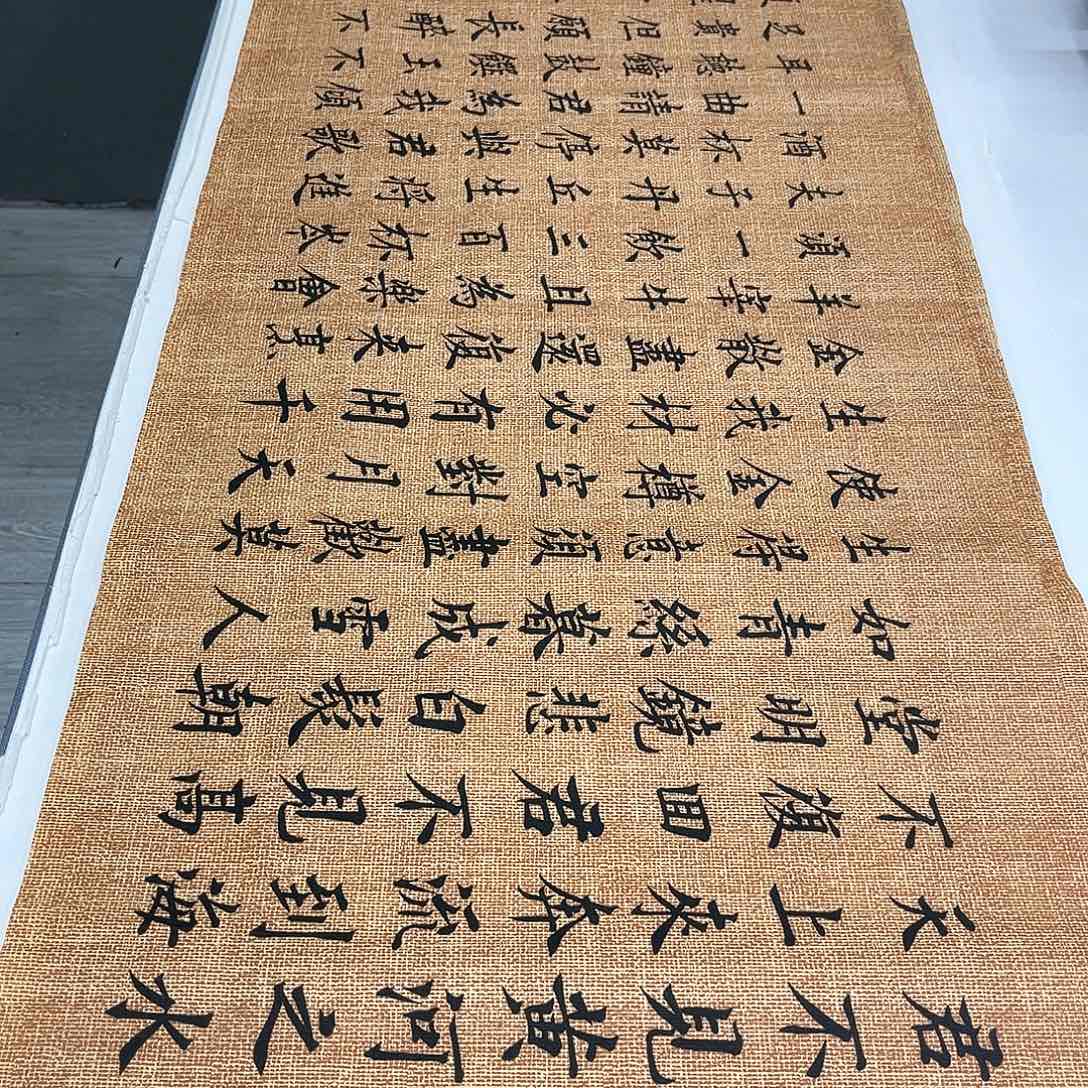 君不見黃河之水
天上来奔流到海
不復回君不見高
堂明鏡悲白髮朝
如青絲暮成雪人
生得意須盡歡莫
使金樽空對月天
生我材必有用千
金散盡還復来烹
羊宰牛且為樂會
須一飲三百杯岑
夫子丹丘生將進
酒杯莫停與君歌
一曲請君為我傾
耳聽鐘鼓饌玉不
足貴但願長醉不